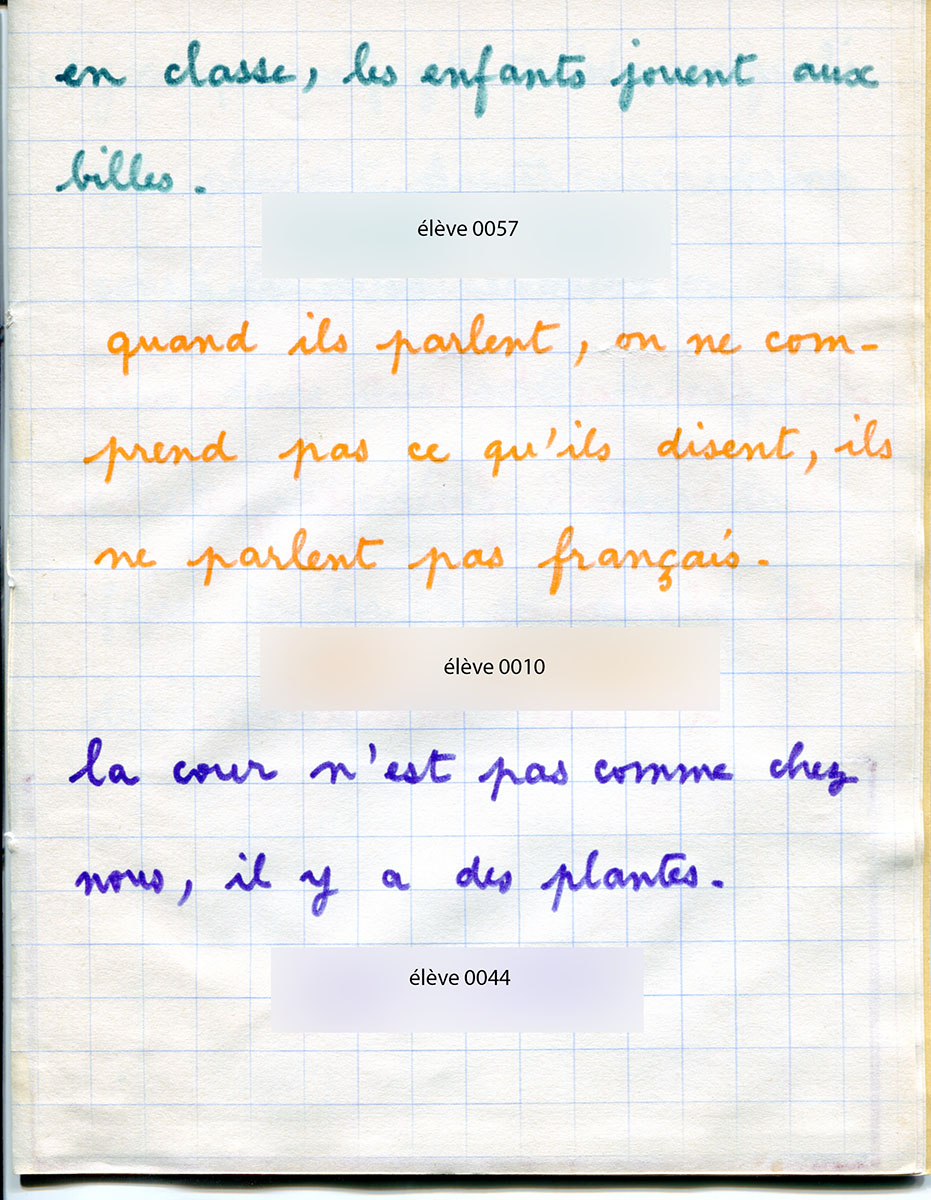 en classe, les enfants jouent aux
billes.
élève 0057
quand ils parlent, on ne com-
prend pas ce qu'ils disent, ils
ne parlent pas français.
élève 0010
la cour n'est pas comme chez
nous, il y a des plantes.
élève 0044